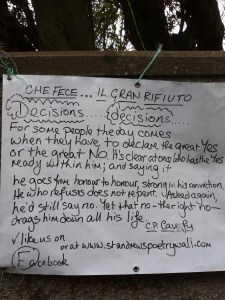 CHE FECE... IL GRAN RIFIUTO
Decisions.... decisions.....
For some people the day comes
when they have to declare the great Yes
or the great NO. It's clear at once who has the Yes
ready within him; and saying it
he goes from honour to honour, strong in his conviction.
He who refuses does not repent. Asked again,
he'd still say no. Yet that no-the right no-
drags him down all his life.
C.P. Cavafy
✓ like us on
or at www.standrewspoetrywall.com
Facebook